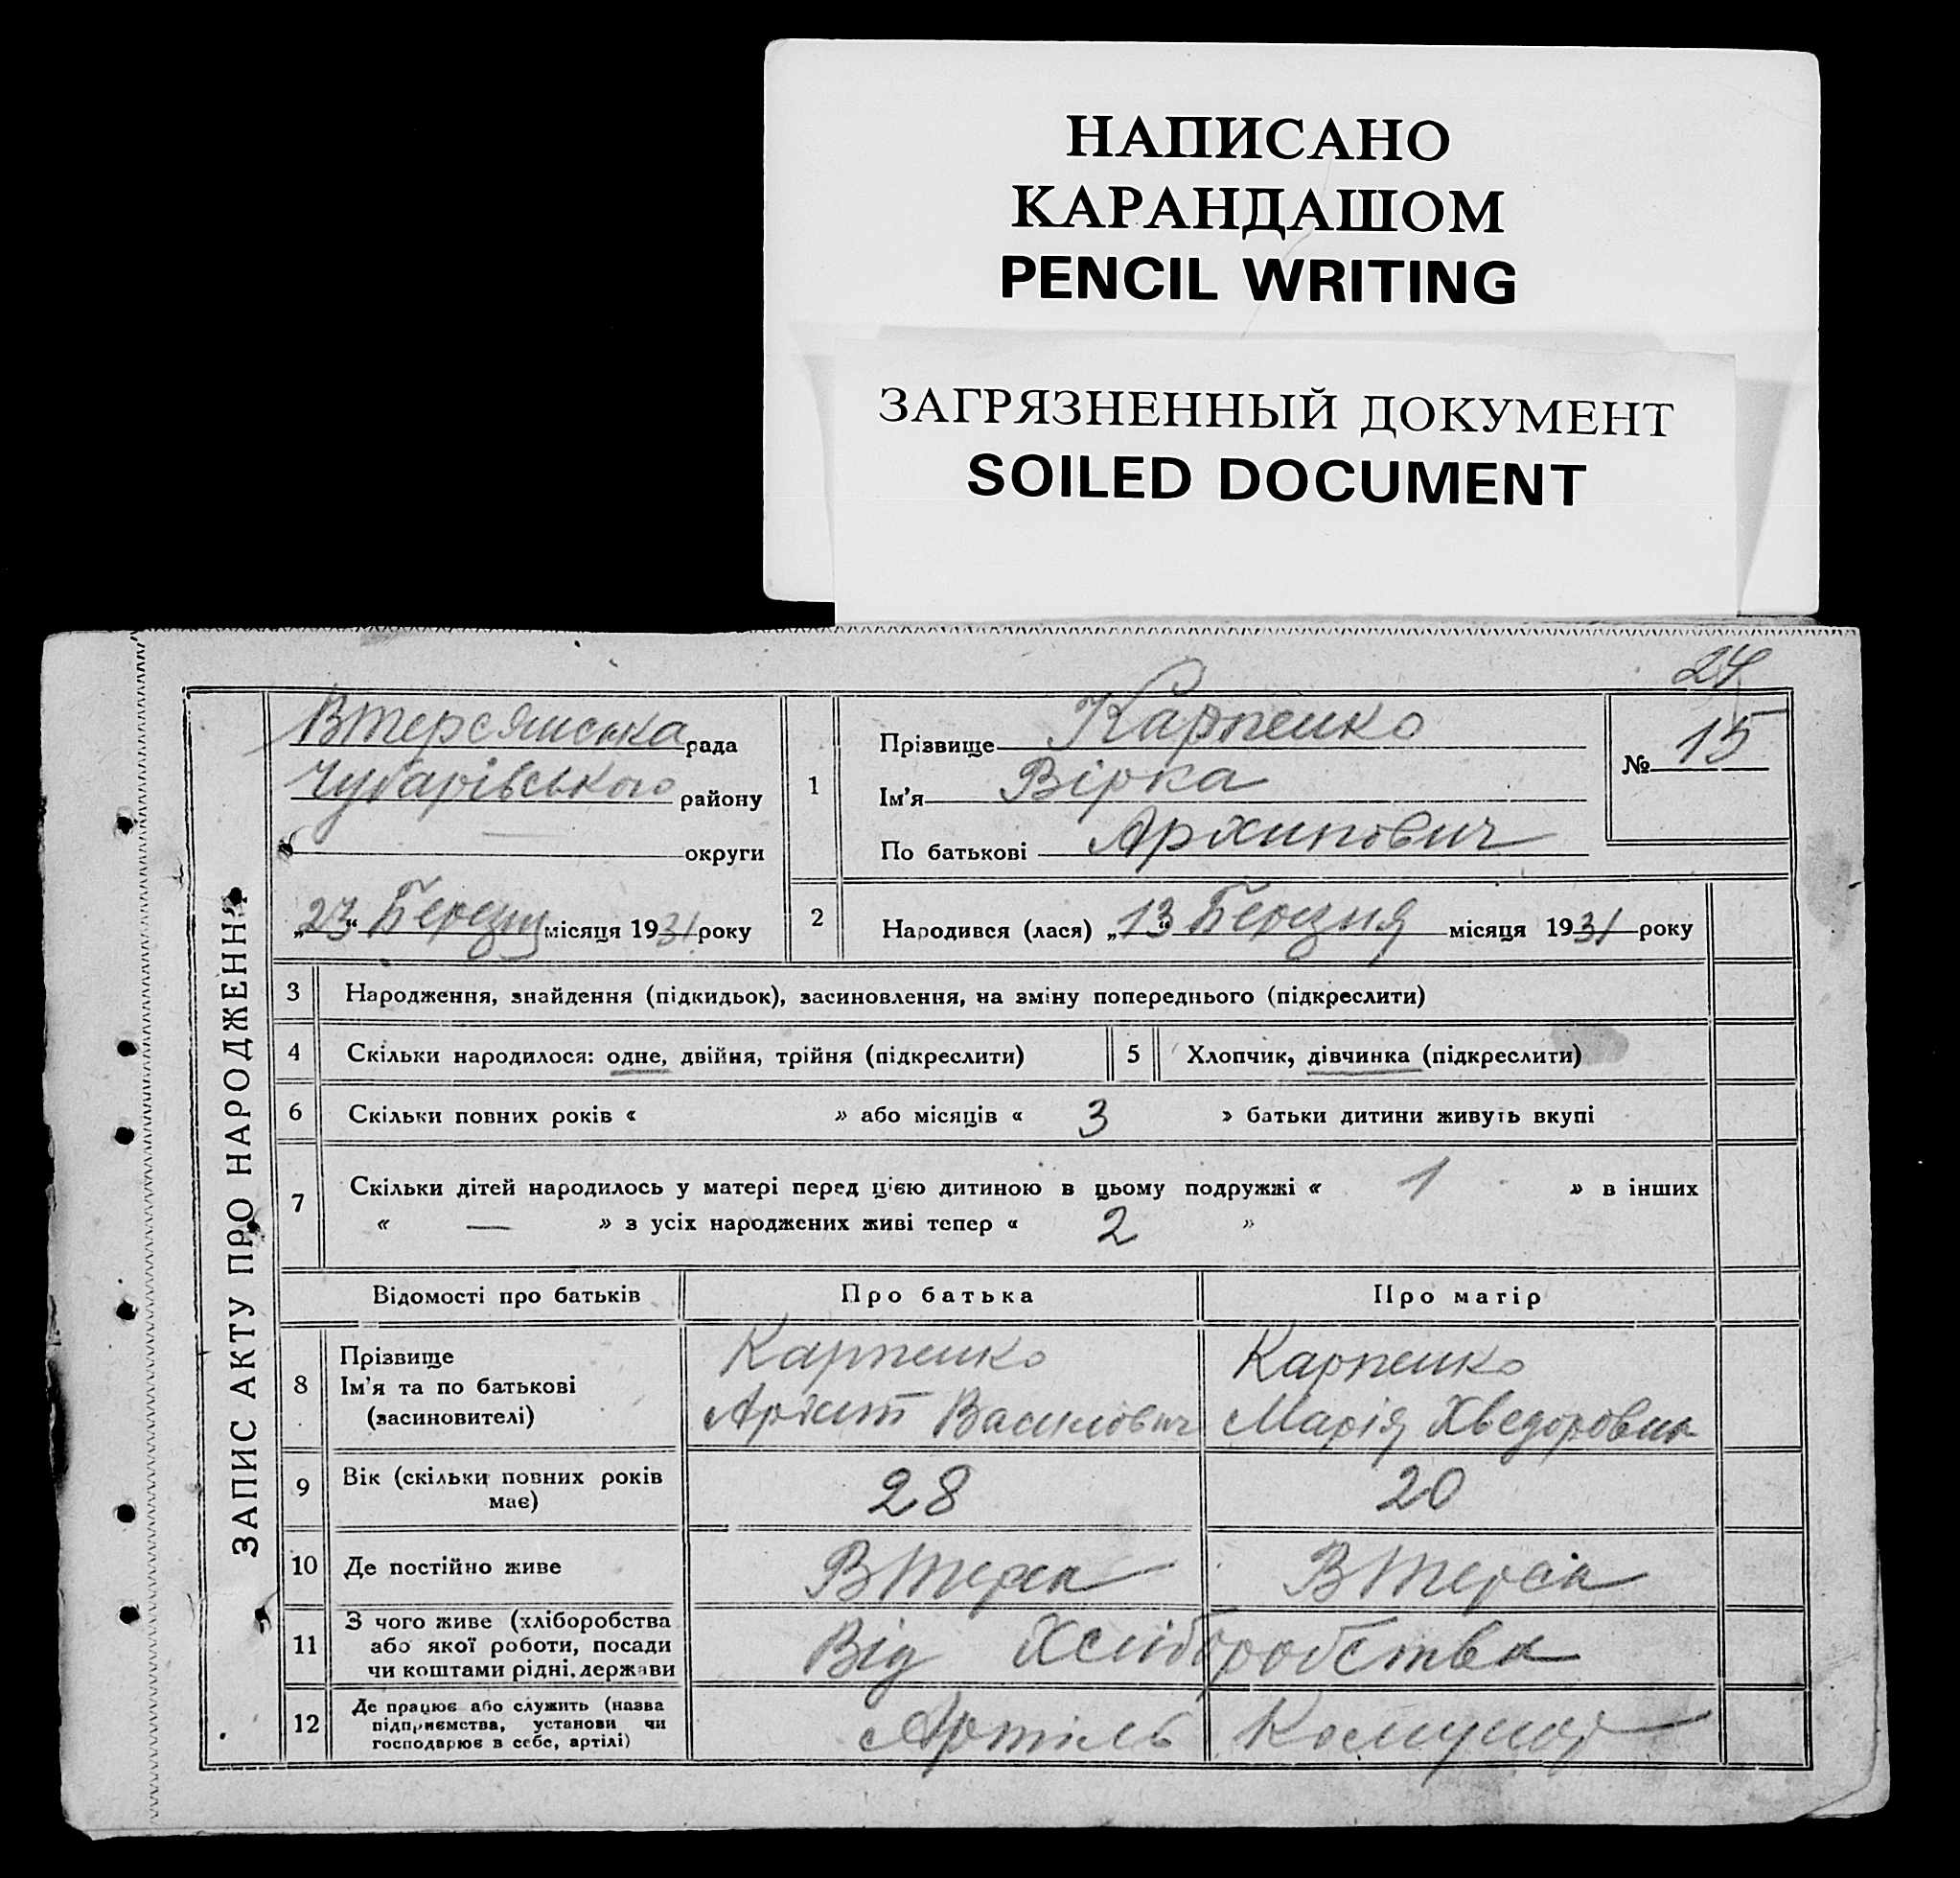 НАПИСАНО
КАРАНДАШОМ
PENCIL WRITING
ЗАГРЯЗНЕННЫЙ ДОКУМЕНТ
SOILED DOCUMENT
24
ЗАПИС АКТУ ПРО НАРОДЖЕННЯ
ВТерсянська рада
Чубарівського району
— округи
„23“ Березня місяця 1931 року
1
Прізвище Карпенко
Ім'я Вірка
По батькові Архипович
№ 15
2
Народився (лася) „13“ Березня місяця 1931 року
3 Народження, знайдення (підкидьок), засиновлення, на зміну попереднього (підкреслити)
4 Скільки народилося: одне, двійня, трійня (підкреслити)
5 Хлопчик, дівчинка (підкреслити)
6 Скільки повних років « » або місяців « 3 » батьки дитини живуть вкупі
7 Скільки дітей народилось у матері перед цією дитиною в цьому подружжі « 1 » в інших
« — » з усіх народжених живі тепер « 2 »
Відомості про батьків Про батька Про матір
8 Прізвище
Ім'я та по батькові
(засиновителі)
Карпенко
Архип Василович
Карпенко
Марія Хведоровна
9 Вік (скільки повних років
має)
28 20
10 Де постійно живе ВТерса ВТерса
11 З чого живе (хліборобства
або якої роботи, посади
чи коштами рідні, держави
Від Хліборобства
12 Де працює або служить (назва
підприємства, установи чи
господарює в себе, артілі)
Артіль Комунар